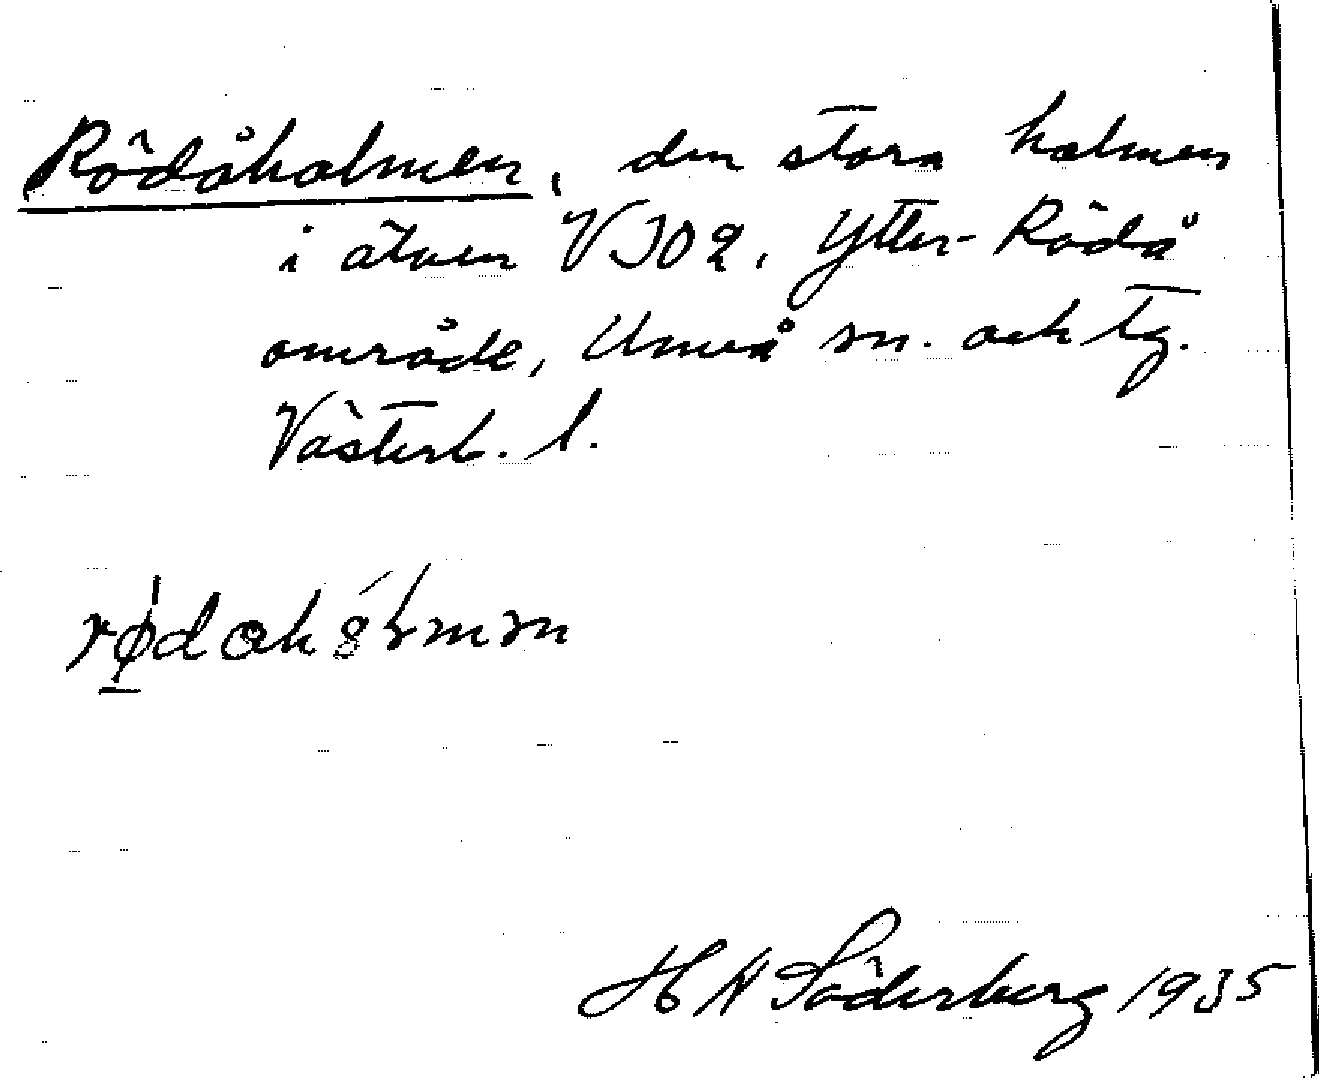 Rödåholmen, den stora holmen
i älven VSO 2, Ytter-Rödå
område, Umeå sn. och tg.
Västerb. l.
H N Söderberg 1935